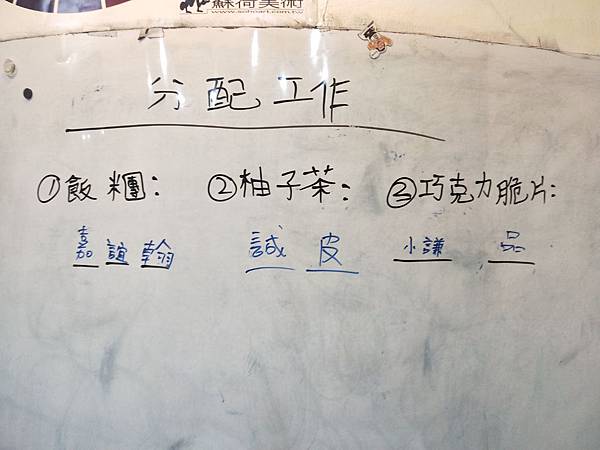 蘇荷美術
www.sohoart.com.tw
分配工作
①飯糰： ②柚子茶： ③巧克力脆片：
嘉 誼 翰 誠 皮 小謙 品